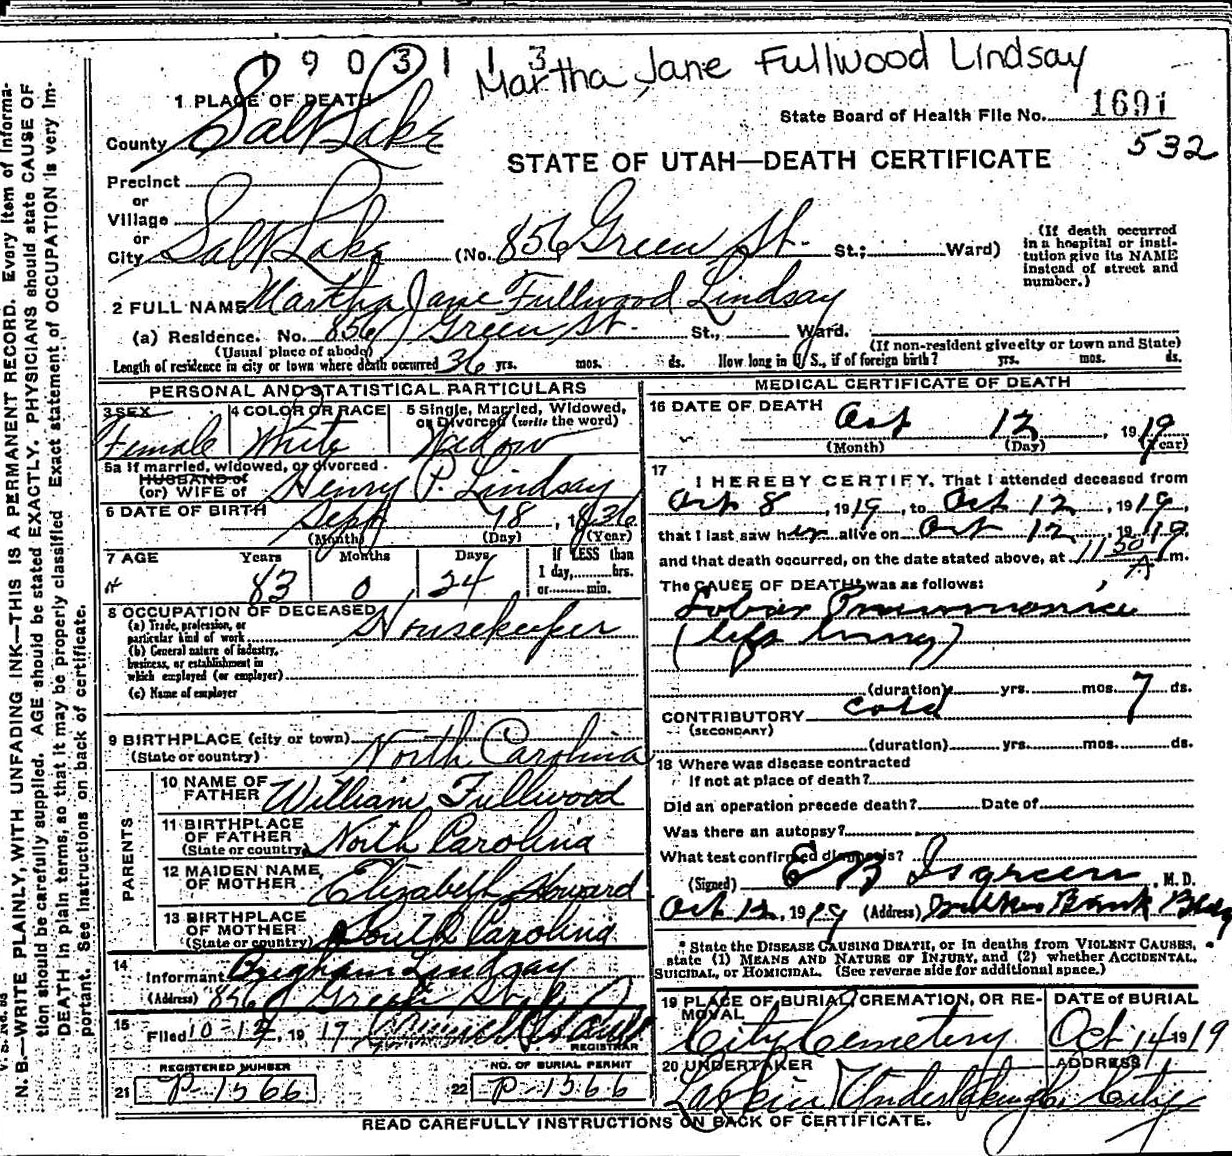 1903113
Martha Jane Fullwood Lindsay
1 PLACE OF DEATH
State Board of Health File No. 1691
County Salt Lake
532
STATE OF UTAH—DEATH CERTIFICATE
Precinct
or
Village
or
City Salt Lake (No. 856 Green St. St.; Ward)
(If death occurred in a hospital or institution give its NAME instead of street and number.)
2 FULL NAME Martha Jane Fullwood Lindsay
(a) Residence. No. 856 Green St. St., Ward.
(Usual place of abode) (If non-resident give city or town and State)
Length of residence in city or town where death occurred 36 yrs. mos. ds. How long in U. S., if of foreign birth? yrs. mos. ds.
PERSONAL AND STATISTICAL PARTICULARS
3 SEX Female
4 COLOR OR RACE White
5 Single, Married, Widowed, or Divorced (write the word) Widow
5a If married, widowed, or divorced
HUSBAND of
(or) WIFE of Henry P. Lindsay
6 DATE OF BIRTH Sept 18, 1836
(Month) (Day) (Year)
7 AGE Years Months Days If LESS than
83 0 24 1 day, hrs.
or min.
8 OCCUPATION OF DECEASED
(a) Trade, profession, or particular kind of work Housekeeper
(b) General nature of industry, business, or establishment in which employed (or employer)
(c) Name of employer
9 BIRTHPLACE (city or town)
(State or country) North Carolina
PARENTS
10 NAME OF FATHER William Fullwood
11 BIRTHPLACE OF FATHER (State or country) North Carolina
12 MAIDEN NAME OF MOTHER Elizabeth Howard
13 BIRTHPLACE OF MOTHER (State or country) South Carolina
14 Informant Brigham Lindsay
(Address) 856 Green St.
15 Filed 10-14, 1919
REGISTRAR
REGISTERED NUMBER
21 P-1566
NO. OF BURIAL PERMIT
22 P-1566
MEDICAL CERTIFICATE OF DEATH
16 DATE OF DEATH Oct 12, 1919
(Month) (Day) (Year)
17 I HEREBY CERTIFY, That I attended deceased from
Oct 8, 1919, to Oct 12, 1919,
that I last saw her alive on Oct 12, 1919,
and that death occurred, on the date stated above, at 11 30 A m.
The CAUSE OF DEATH* was as follows:
Lobar Pneumonia
(left lung)
(duration) yrs. mos. 7 ds.
CONTRIBUTORY cold
(SECONDARY)
(duration) yrs. mos. ds.
18 Where was disease contracted
If not at place of death?
Did an operation precede death? Date of
Was there an autopsy?
What test confirmed diagnosis?
(Signed) E B Isgreen, M. D.
Oct 12, 1919 (Address) Bank Bldg
* State the DISEASE CAUSING DEATH, or in deaths from VIOLENT CAUSES, state (1) MEANS AND NATURE OF INJURY, and (2) whether ACCIDENTAL, SUICIDAL, or HOMICIDAL. (See reverse side for additional space.)
19 PLACE OF BURIAL, CREMATION, OR REMOVAL City Cemetery
DATE OF BURIAL Oct 14 1919
20 UNDERTAKER Larkin Undertaking Co
ADDRESS City
READ CAREFULLY INSTRUCTIONS ON BACK OF CERTIFICATE.
V. S. No. 88
N. B.—WRITE PLAINLY, WITH UNFADING INK—THIS IS A PERMANENT RECORD. Every item of information should be carefully supplied. AGE should be stated EXACTLY. PHYSICIANS should state CAUSE OF DEATH in plain terms, so that it may be properly classified. Exact statement of OCCUPATION is very important. See instructions on back of certificate.